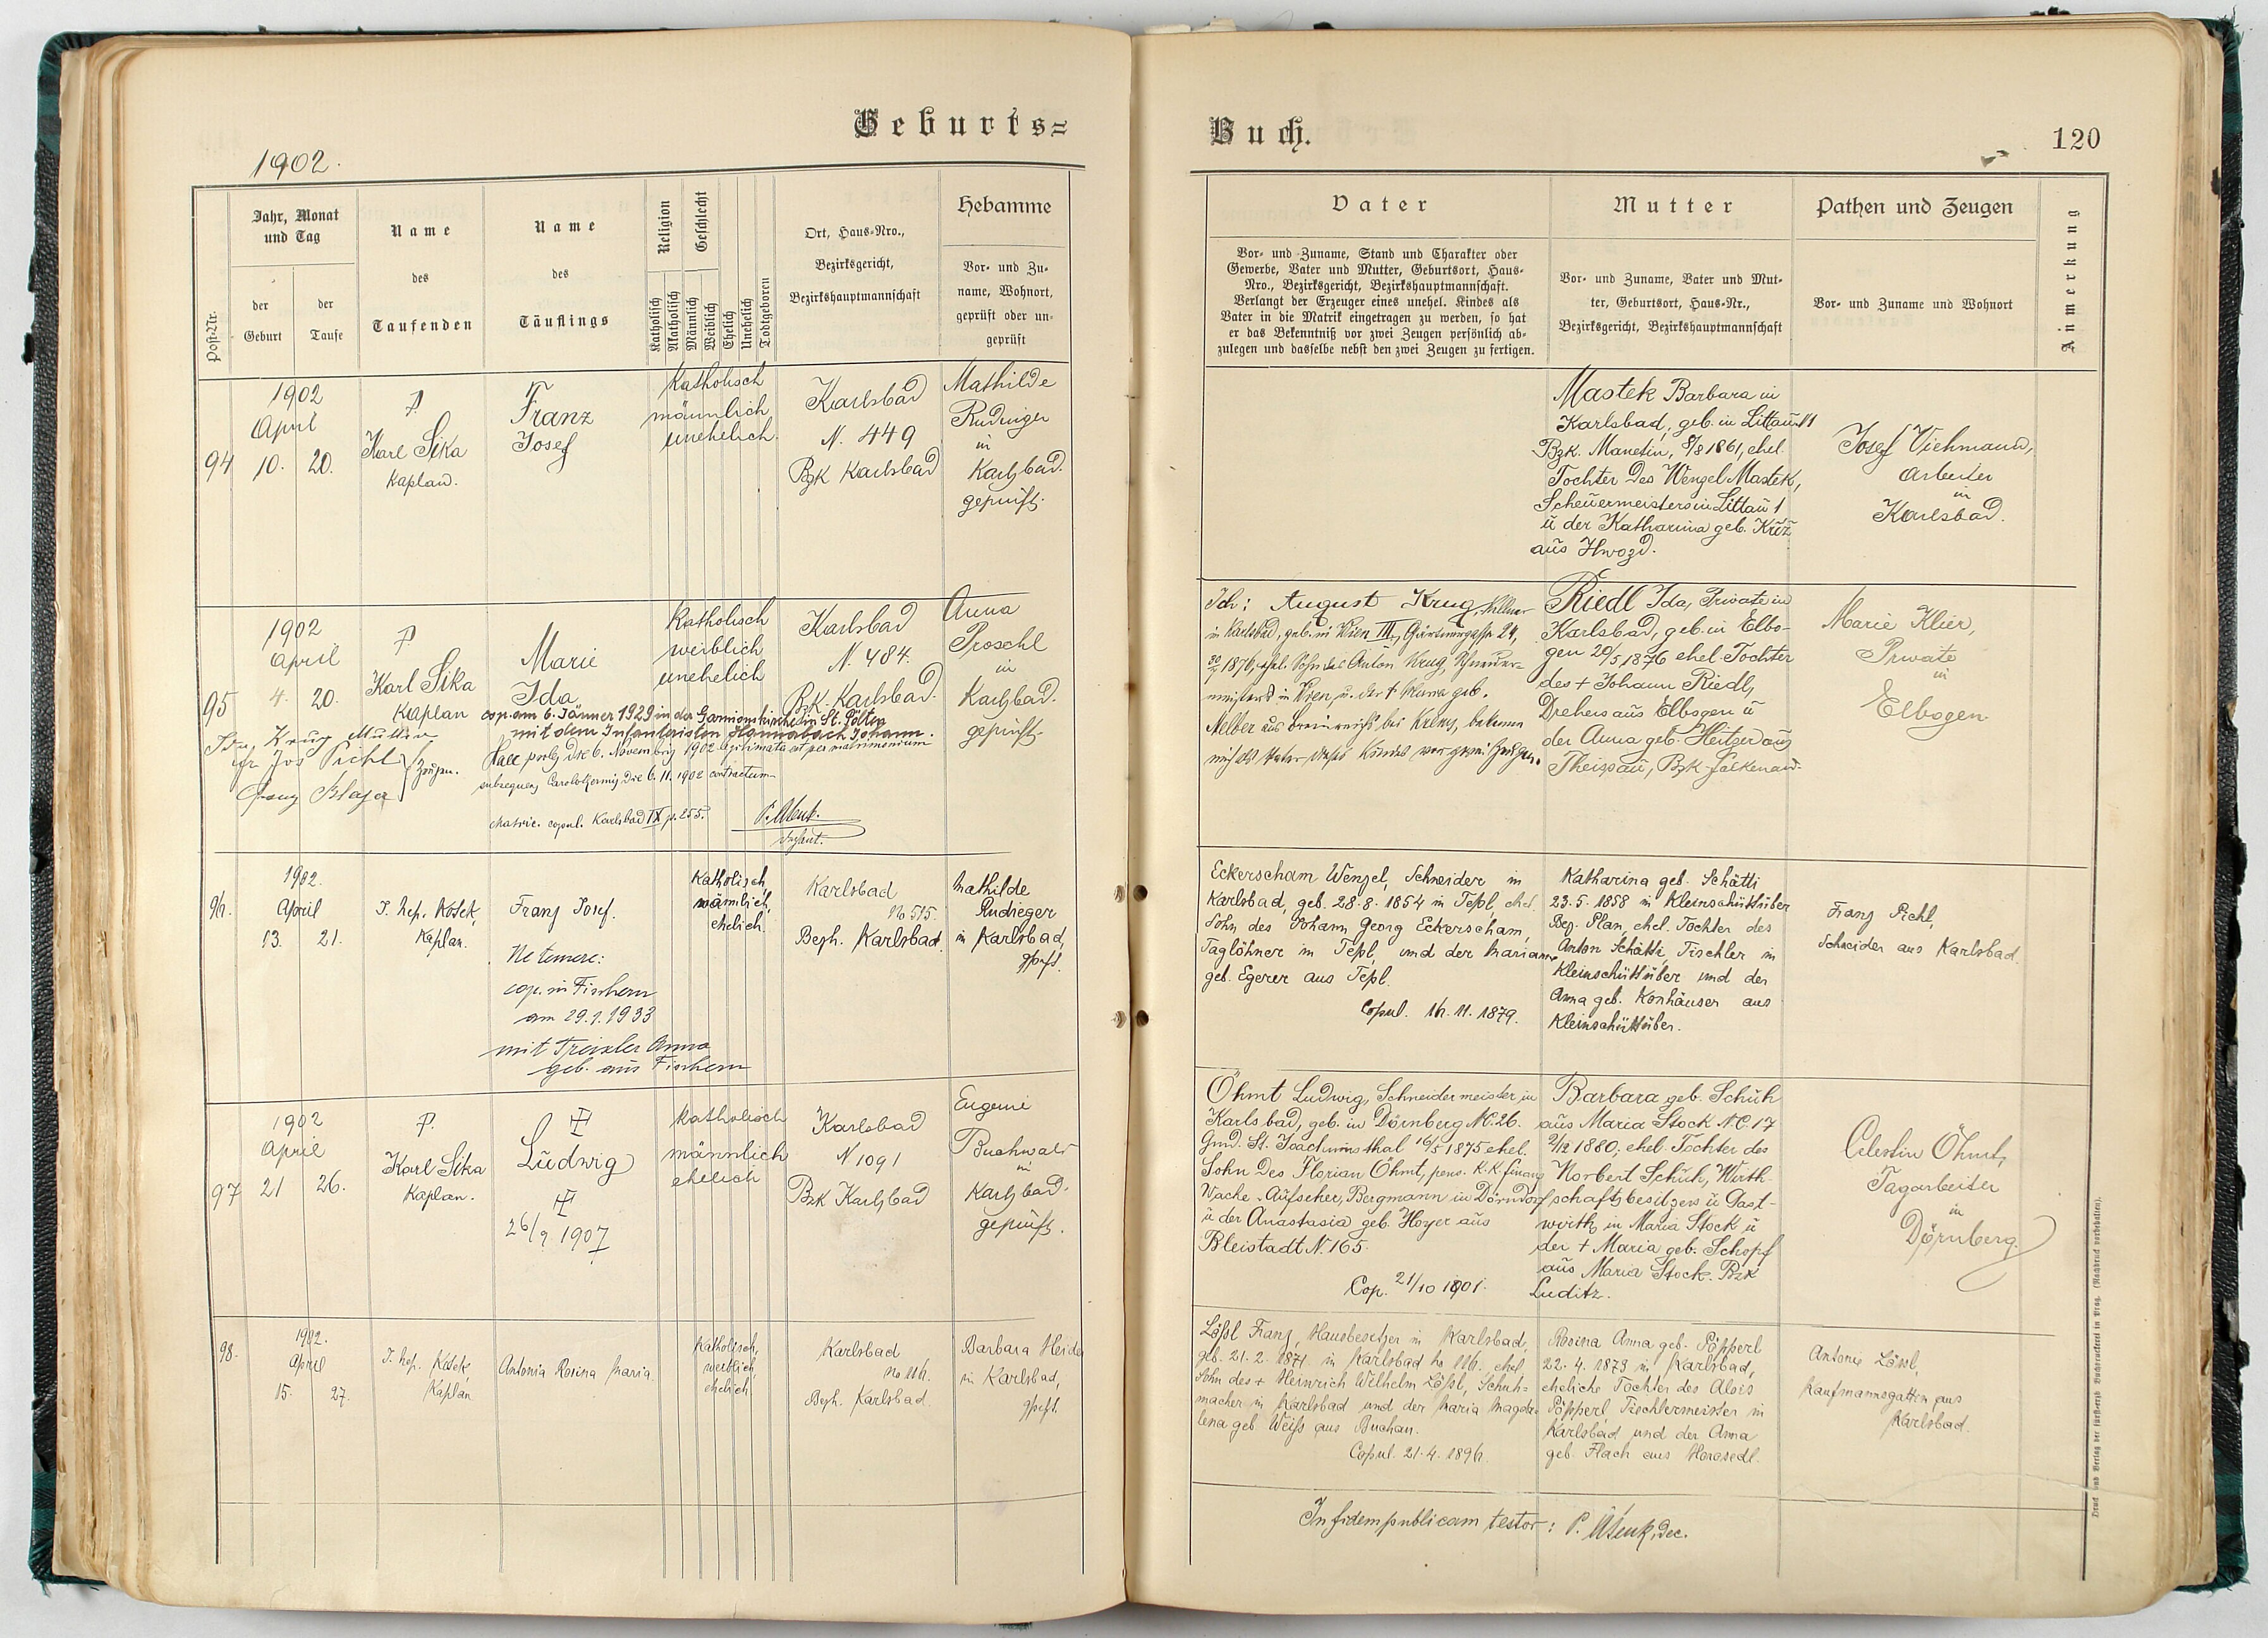 Geburts=
1902.
Post-Nr.
Jahr, Monat
und Tag
der
Geburt
der
Taufe
Name
des
Taufenden
Name
des
Täuflings
Religion
Geschlecht
Katholisch
Akatholisch
Männlich
Weiblich
Ehelich
Unehelich
Todtgeboren
Ort, Haus-Nro.,
Bezirksgericht,
Bezirkshauptmannschaft
Hebamme
Vor- und Zu-
name, Wohnort,
geprüft oder un-
geprüft
94
1902
April
10. 20.
P.
Karl Sika
Kaplan.
Franz
Josef
katholisch
männlich
unehelich
Karlsbad
N. 449
Bzk Karlsbad
Mathilde
Rudinger
in
Karlsbad.
geprüft.
95
1902
April
4. 20.
P.
Karl Sika
Kaplan
Marie
Ida
katholisch
weiblich
unehelich
Karlsbad
N. 484.
Bzk. Karlsbad.
Anna
Proschl
in
Karlsbad.
geprüft.
cop. am 6. Jänner 1929 in der Garnisonskirche in St. Pölten
mit dem Infanteristen Johann.
Ida Krug Mutter
Jos Pichl
Franz Blaja
Zeugen.
Haec proles die 6. Novembris 1902 legitimata est per matrimonium
subsequens die 6. 11. 1902 contractum
Matric. copul. Karlsbad IX p. 255.
96.
1902.
April
13. 21.
J. Nep. Kosek,
Kaplan.
Franz Josef.
Ne temere:
cop. in Fischern
am 29.1.1933
mit Treixler Anna
geb. aus Fischern
Katholisch,
männlich,
ehelich.
Karlsbad
No 515.
Bezh. Karlsbad.
Mathilde
Rudieger
in Karlsbad,
gepft.
97
1902
April
21 26.
P.
Karl Sika
Kaplan.
Ludwig
26/9 1907
katholisch
männlich
ehelich
Karlsbad
N 1091
Bzk Karlsbad
Eugenie
Buchwald
in
Karlsbad.
geprüft.
98.
1902.
April
15. 27.
J. Nep. Kosek,
Kaplan
Antonia Rosina Maria
Katholisch,
weiblich,
ehelich
Karlsbad
No 116.
Bezh. Karlsbad.
Barbara Heider
in Karlsbad,
gepft.
Buch.
120
Vater
Vor- und Zuname, Stand und Charakter oder
Gewerbe, Vater und Mutter, Geburtsort, Haus-
Nro., Bezirksgericht, Bezirkshauptmannschaft.
Verlangt der Erzeuger eines unehel. Kindes als
Vater in die Matrik eingetragen zu werden, so hat
er das Bekenntniß vor zwei Zeugen persönlich ab-
zulegen und dasselbe nebst den zwei Zeugen zu fertigen.
Mutter
Vor- und Zuname, Vater und Mut-
ter, Geburtsort, Haus-Nr.,
Bezirksgericht, Bezirkshauptmannschaft
Pathen und Zeugen
Vor- und Zuname und Wohnort
Anmerkung
Mastek Barbara in
Karlsbad, geb. in Littau N 1
Bzk. Manetin, 8/8 1861, ehel.
Tochter des Wenzel Mastek,
Scheuermeisters in Littau 1
u der Katharina geb. Kriz
aus Hwozd.
Josef Viehmann,
Arbeiter
in
Karlsbad.
Ich: August Krug, Kellner
in Karlsbad, geb. in Wien III, Gärtnergasse 24,
1876, ehel. Sohn des Anton Krug, Schneider-
meisters in Wien, u. der + geb.
Melber aus bei Krems, bekenne
mich als Vater dieses Kindes vor zwei Zeugen.
Riedl Ida, Private in
Karlsbad, geb. in Elbo-
gen 29/5 1876 ehel. Tochter
des + Johann Riedl,
Drehers aus Elbogen u
der Anna geb. Heitzer aus
Theissau, Bzk. Falkenau.
Marie Klier,
Private
in
Elbogen.
Eckerscham Wenzel, Schneider in
Karlsbad, geb. 28.8.1854 in Tepl, ehel.
Sohn des Johann Georg Eckerscham,
Taglöhner in Tepl, und der Mariann
geb. Egerer aus Tepl.
Copul. 16.11.1879.
Katharina geb. Schätti
23.5.1858 in Kleinschüttüber
Bez. Plan, ehel. Tochter des
Anton Schätti, Tischler in
Kleinschüttüber und der
Anna geb. Konhäuser aus
Kleinschüttüber.
Franz Pichl,
Schneider aus Karlsbad.
Öhmt Ludwig, Schneidermeister in
Karlsbad, geb. in Dörnberg NC. 26.
Gmd. St. Joachimsthal 16/5 1875 ehel.
Sohn des Florian Öhmt, pens. K.K. Finanz
Wache-Aufseher, Bergmann in Dörndorf
u der Anastasia geb. Hoyer aus
Bleistadt N. 165.
Cop. 21/10 1901.
Barbara geb. Schuh
aus Maria Stock N.C. 17
2/12 1880; ehel. Tochter des
Norbert Schuh, Wirth-
schaftsbesitzers u Gast-
wirths in Maria Stock u
der + Maria geb. Schopf
aus Maria Stock. Bzk
Luditz.
Celestin Öhmt,
Tagarbeiter
in
Dörnberg.
Lößl Franz, Hausbesitzer in Karlsbad,
geb. 21.2.1871 in Karlsbad No 116. ehel.
Sohn des + Heinrich Wilhelm Lößl, Schuh=
macher in Karlsbad und der Maria Magda=
lena geb. Weiß aus Buchau.
Copul. 21.4.1896.
Rosina Anna geb. Pöpperl
22.4.1873 in Karlsbad,
eheliche Tochter des Alois
Pöpperl, Tischlermeister in
Karlsbad und der Anna
geb. Flach aus Horosedl.
Antonie Lössl,
Kaufmannsgattin aus
Karlsbad.
In fidem publicam testor:
Druck und Verlag der fürst-erzb. Buchdruckerei in Prag. (Nachdruck vorbehalten).